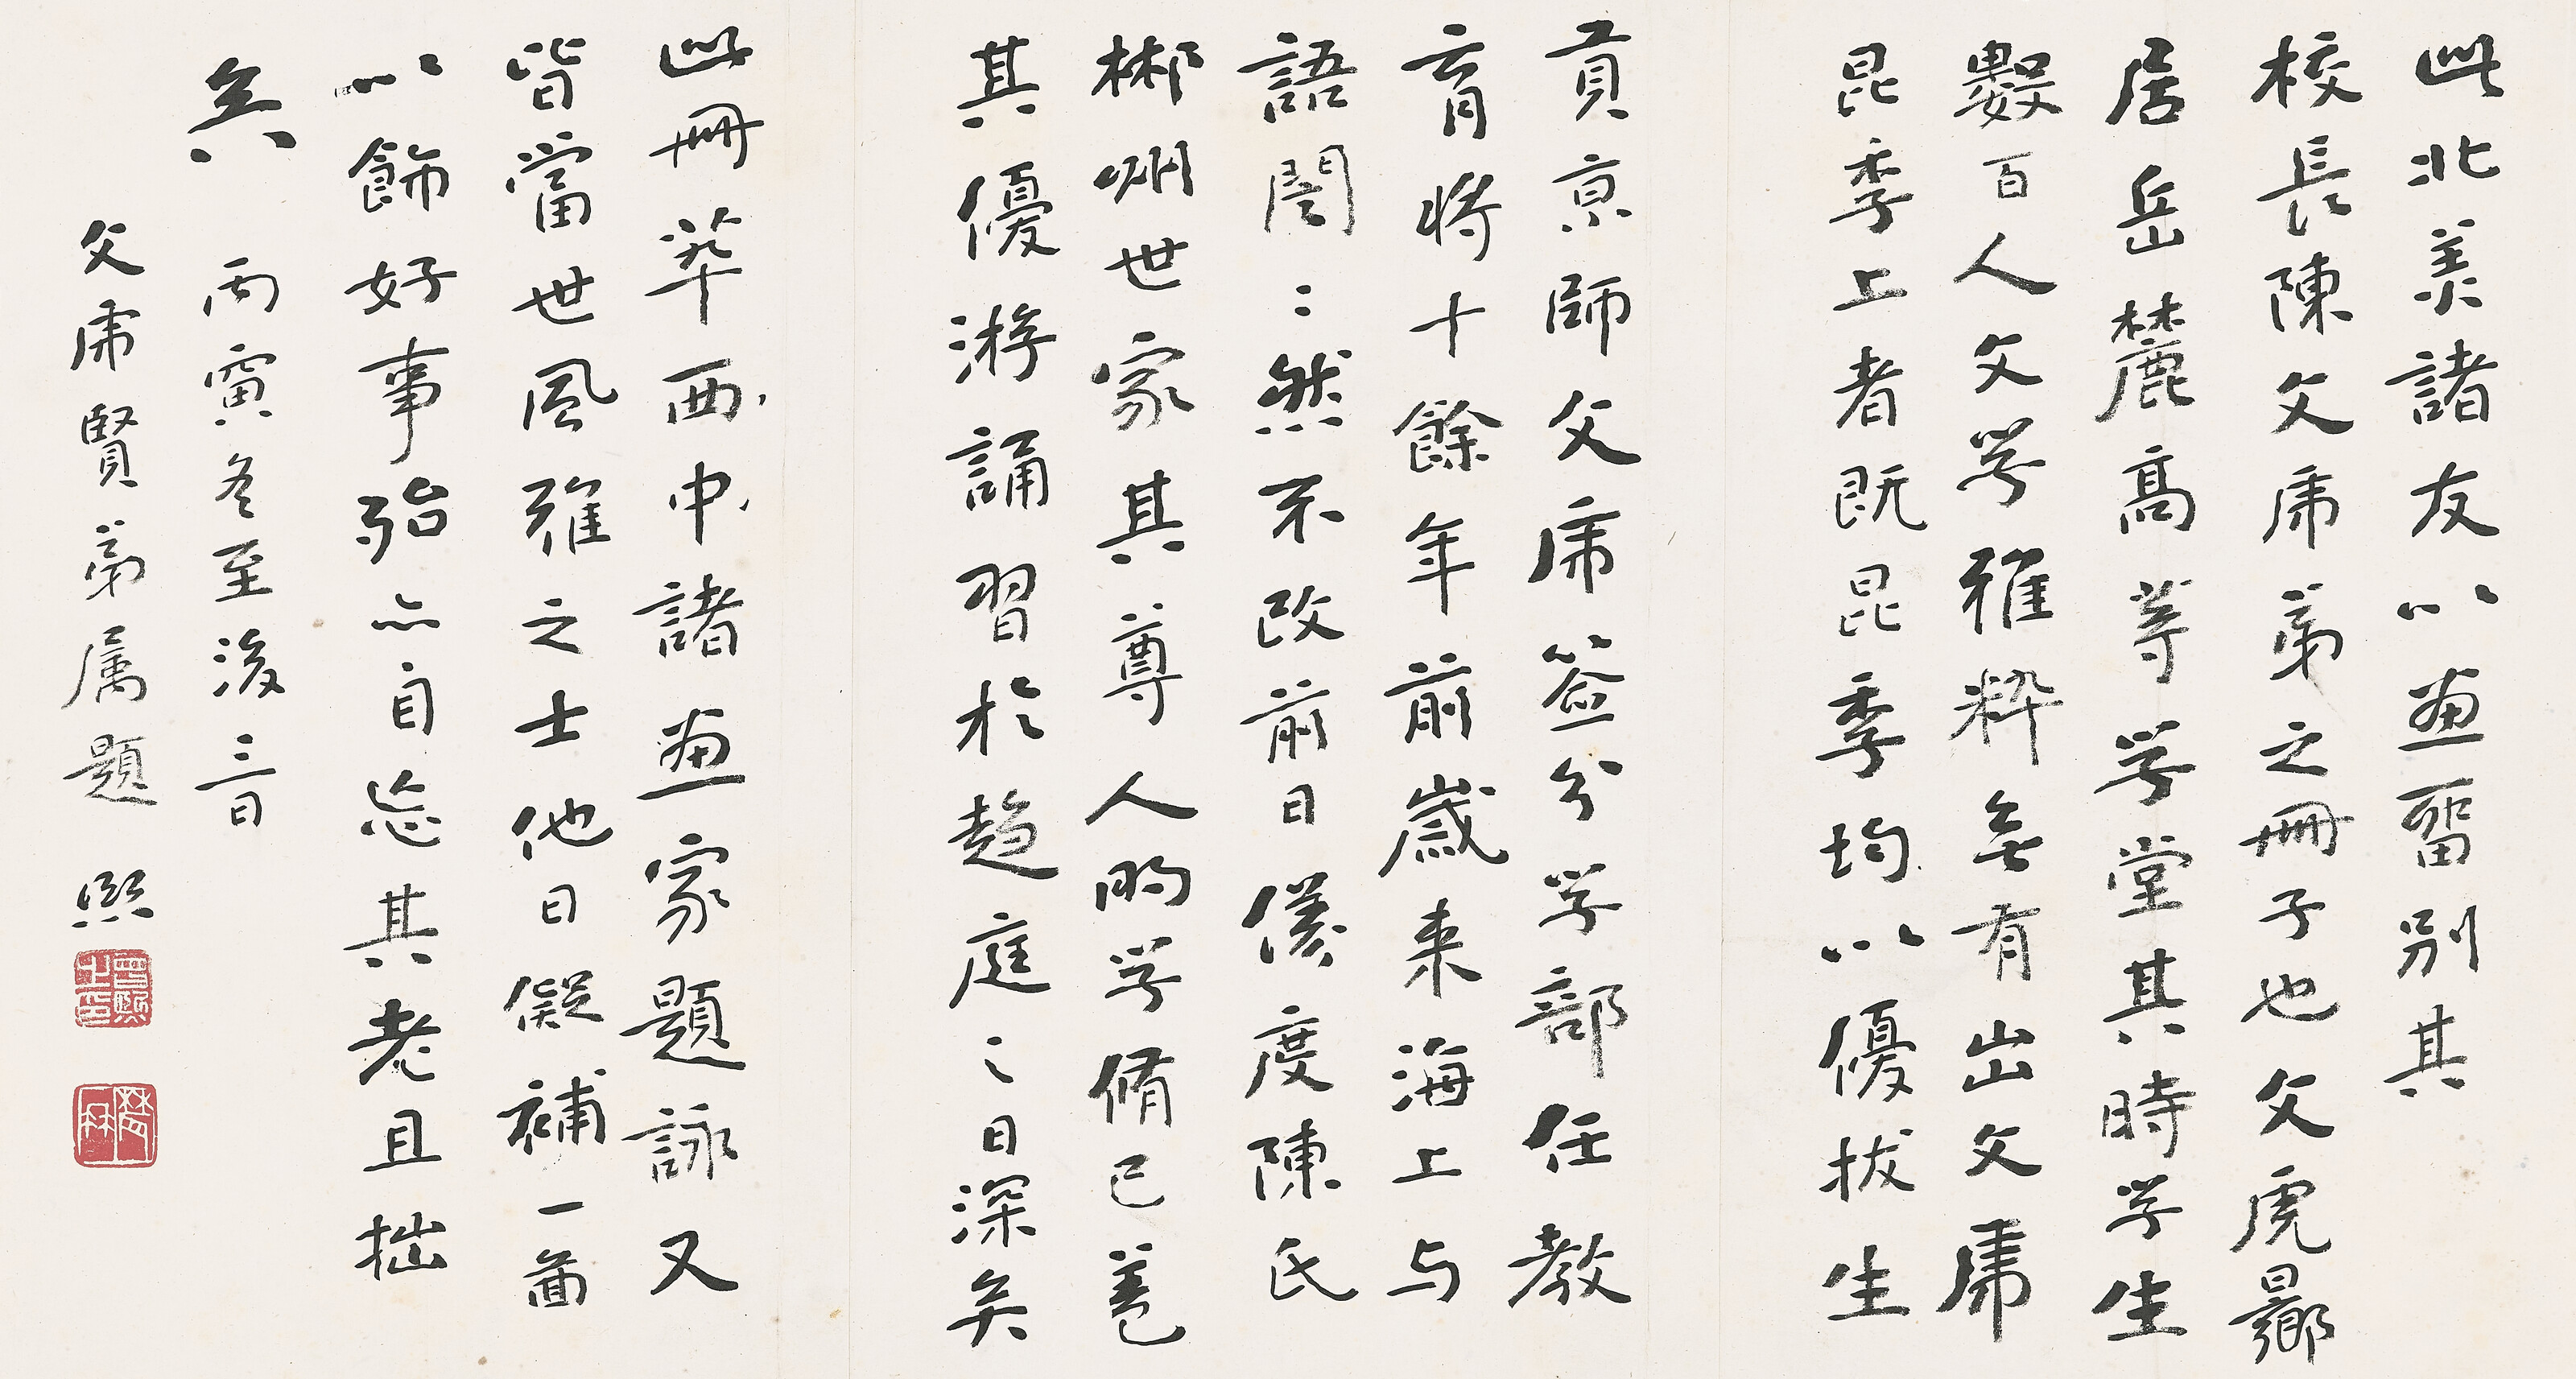 此北美諸友以畫留別其
校長陳文虎弟之冊子也文虎曏
居岳麓高等学堂其時学生
數百人文学雅粹無有出文虎
昆季上者既昆季均以優拔生
貢京師文虎簽分学部任教
育將十餘年前歲來海上与
語誾〻然不改前日儀度陳氏
郴州世家其尊人昀学脩已養
其優游誦習於趨庭之日深矣
此冊華西中諸畫家題詠又
皆當世風雅之士他日儗補一啚
以飾好事殆亦自忘其老且拙
矣 丙寅冬至後三日
文虎賢弟属題 熙